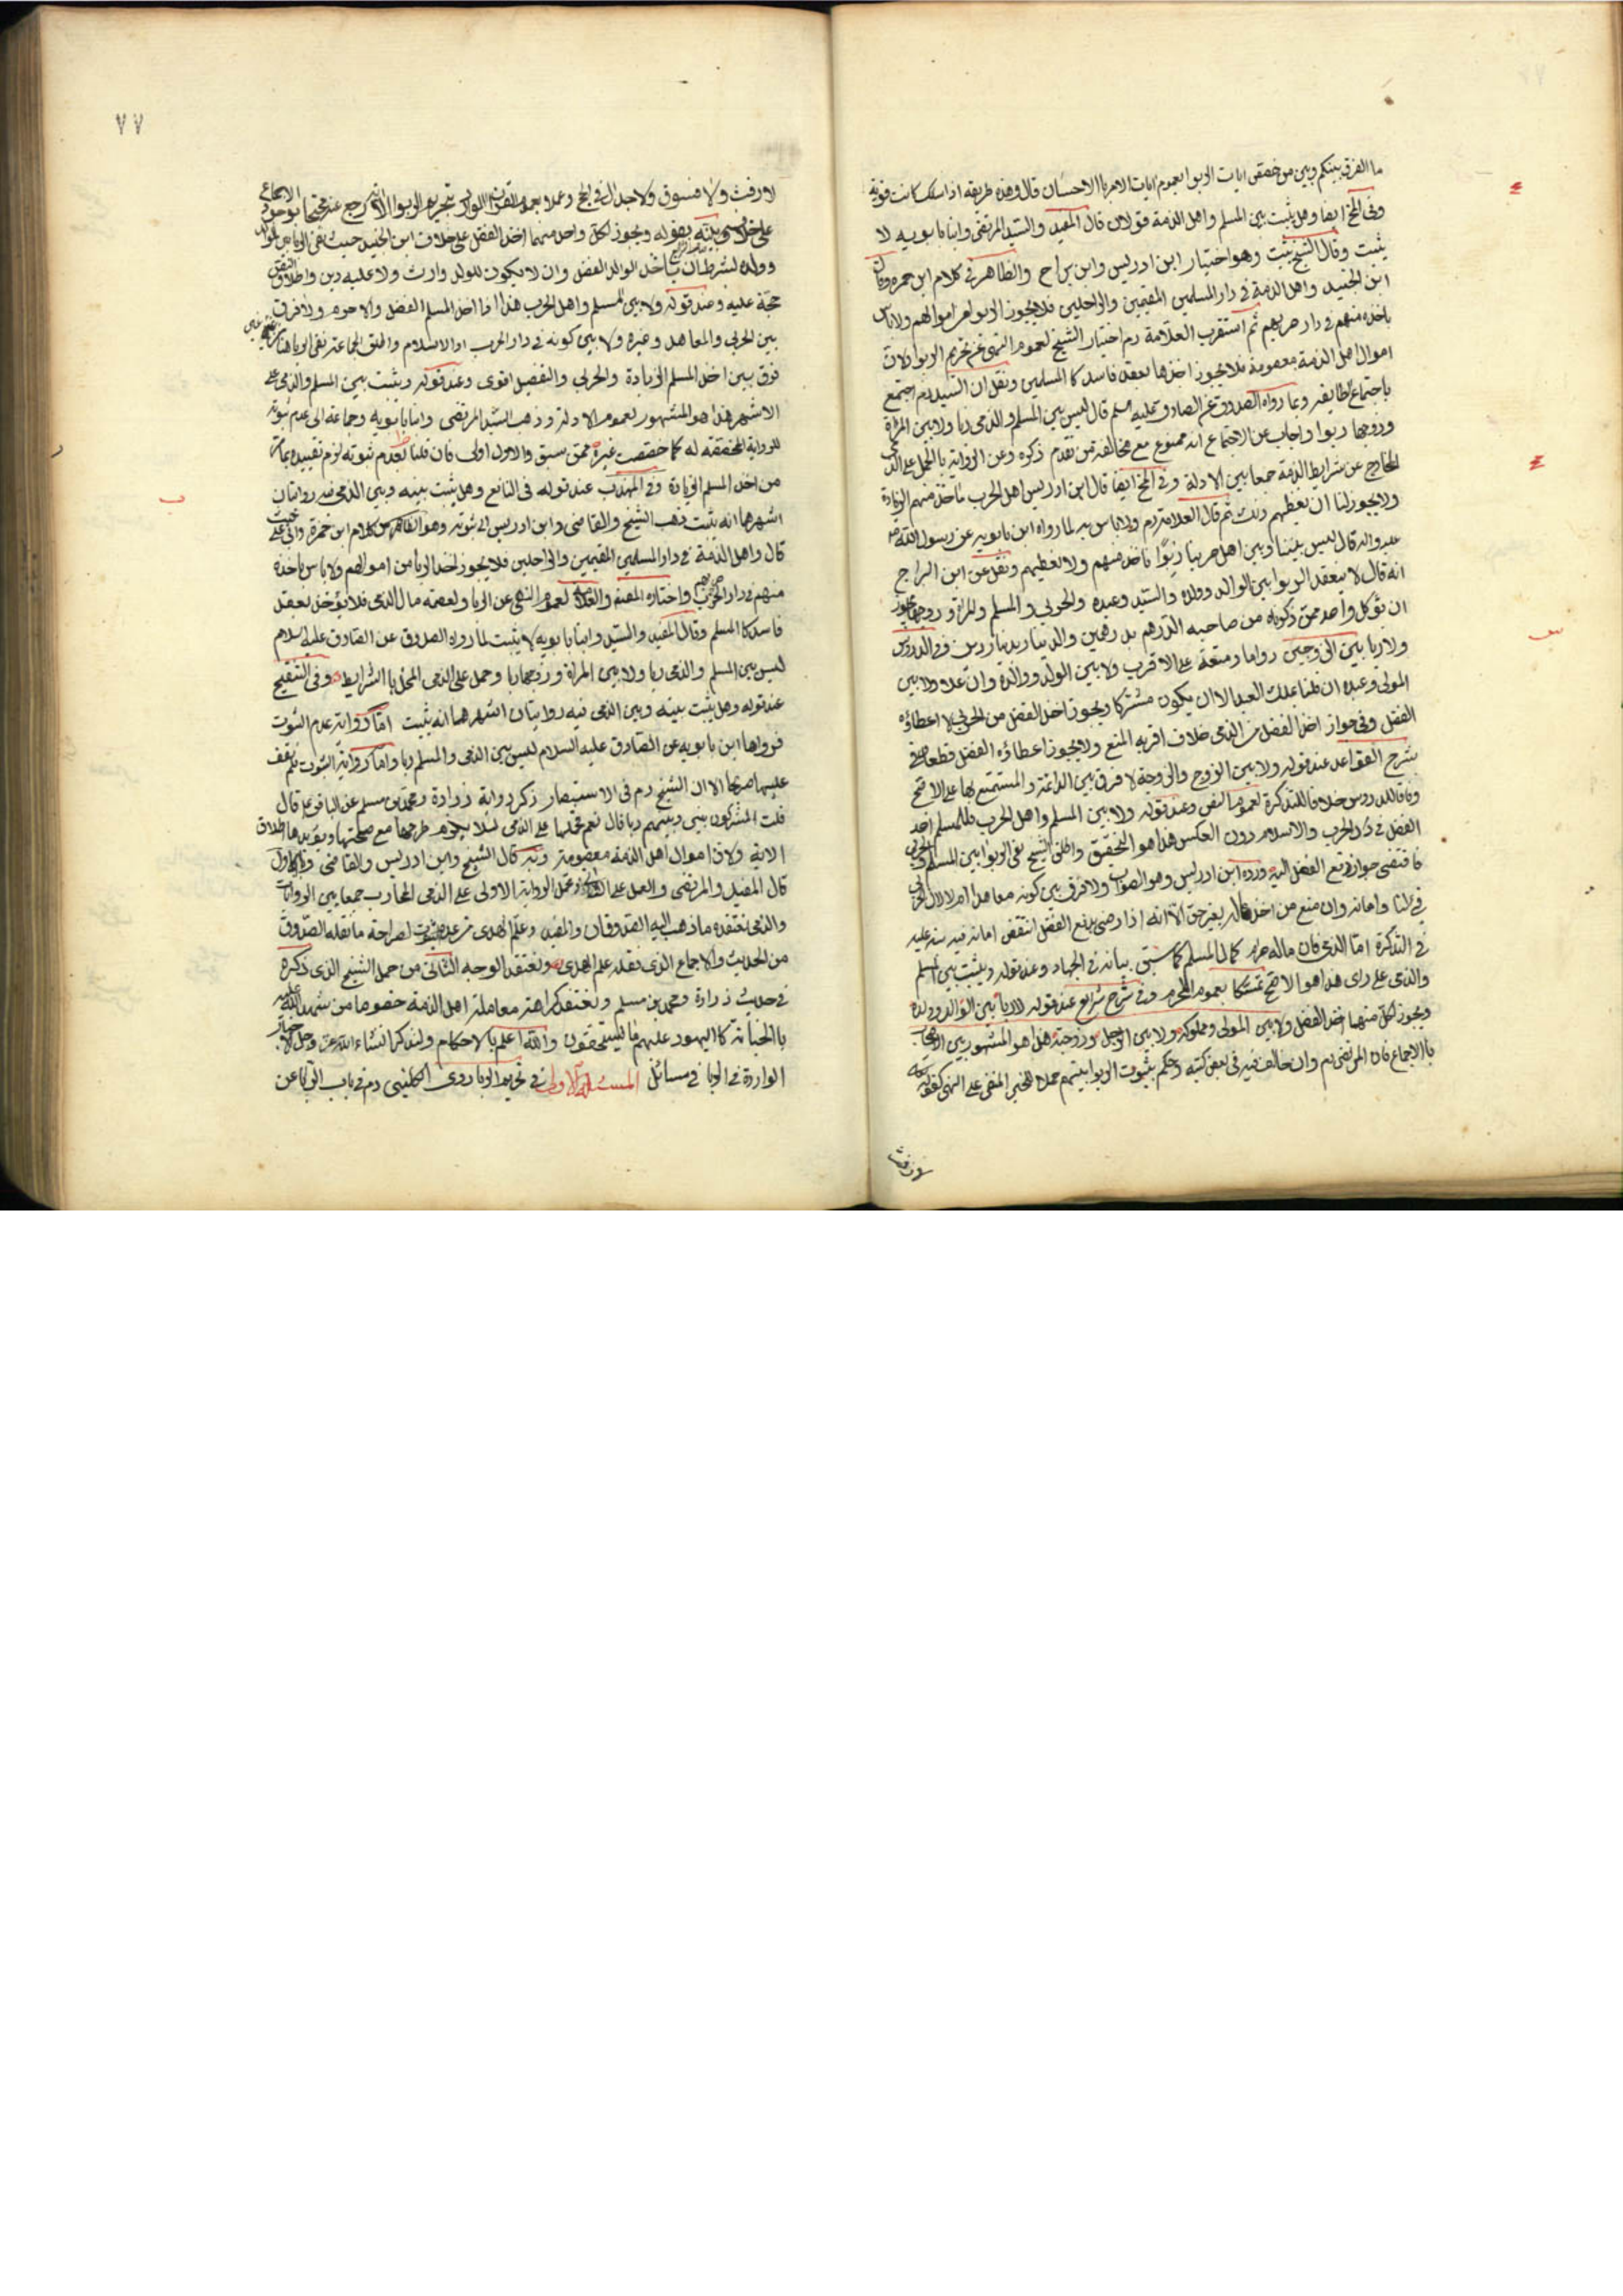 ما الفرق بينكم وبين من خصص ايات الربوا بعموم ايات الامر باالاحسان قال وهذه طريقة اذا سلكت كانت قوية
وفى المخ ايضا وهل يثبت بين المسلم واهل الذمة قولان قال المفيد والسيد المرتضى وابنا بابويه لا
يثبت وقال الشيخ يثبت وهو اختيار ابن ادريس وابن براج والظاهر فى كلام ابن حمزه وقال
ابن الجنيد واهل الذمة فى دار المسلمين المقيمين والراحلين فلا يجوز الربو لهم اموالهم ولا باس
باخذه منهم فى دار حربهم ثم استقرب العلامة رم اختيار الشيخ لعموم النهى عن تحريم الربو ولان
اموال اهل الذمة معصومة فلا يجوز اخذها بعقد فاسد كا المسلمين ونقل ان السيد رم احتج
باجتماع الطايفة وبما رواه الصدوق عن الصادق عليه سلم قال ليس بين المسلم والذمى ربا ولا بين المراة
وزوجها ربوا واجاب عن الاجتماع انه ممنوع مع مخالفة من تقدم ذكره وعن الرواية بالحمل على الذمى
الخارج عن شرايط الذمة جمعا بين الادلة وفى المخ ايضا قال ابن ادريس اهل الحرب ناخذ منهم الزيادة
ولا يجوز لنا ان نعطيهم ذلك ثم قال العلامة رم ولا باس به لما رواه ابن بابويه عن رسول الله ص
عليه واله قال ليس بيننا وبين اهل حربنا ربوًا ناخذ منهم ولا نعطيهم ونقل عن ابن البراج
انه قال لا ينعقد الربوا بين الوالد وولده والسيد وعبده والحربى و المسلم والمراة وزوجها يجوز
ان ياكل واحد ممن ذكرناه من صاحبه الدرهم بدرهمين والدينار بدينارين وفى الدروس
ولا ربا بين الزوجين دواما ومتعة على الاقرب ولا بين الولد ووالده وان علا ولا بين
المولى وعبده ان قلنا بملك العبد الا ان يكون مشتركا ويجوز اخذ الفضل من الحربى لا اعطاؤه
الفضل وفى جواز اخذ الفضل من الذمى خلاف اقربه المنع ولا يجوز اعطاؤه الفضل قطعا وفى
شرح القواعد عند قوله ولا بين الزوج والزوجة لا فرق بين الدائمة والمستمتع بها على الاصح
وفاقا للدروس خلافا للتذكرة لعموم النص وعند قوله ولا بين المسلم واهل الحرب فللمسلم اخذ
الفضل فى دار الحرب والاسلام دون العكس هذا هو التحقيق واطلق الشيخ نفى الربوا بين المسلم والحربى
فاقتضى جواز دفع الفضل اليه ورده ابن ادريس وهو الصواب ولا فرق بين كونه معاهدا ام لا لان الحربى
فى لنا وامانه وان منع من اخذ ماله بغير حق الا انه اذا رضى بدفع الفضل انتقض امانه فيه نبه عليه
فى التذكرة امّا الذى فان ماله مرم كمال المسلم كما سبق بيانه فى الجهاد وعند قوله ويثبت بين المسلم
والذمى على راى هذا هو الاصح تمسكا بعموم المحرم وفى شرح شرايع عند قوله لا ربا بين الوالد وولده
ويجوز لكل منهما اخذ الفضل ولا بين المولى ومملوكه ولا بين الرجل وزوجته هذا هو المشهور بين الاصحاب
بالاجماع فان المرتضى رم وان خالف فيه فى بعض كتبه وحكم بثبوت الربوا بينهم حملا للخبر المنفى على النهى كقوله
لا رفث
٧٧
لا رفث ولا فسوق ولا جدال فى الحج وعملا بعموم القران الوارد بتحريم الربوا الا انه رجع عنه محتجا بوجود الاجماع
على خلافه ونبه بقوله ويجوز لكل واحد منهما اخذ الفضل على خلاف ابن الجنيد حيث نفى الربا بين الوالد
وولده بشرط ان ياخذ الوالد الفضل وان لا يكون للولد وارث ولا عليه دين واطلاق النص
حجة عليه وعند قوله ولا بين المسلم واهل الحرب هذا اذا اخذ المسلم الفضل والا حرم ولا فرق
بين الحربى والمعاهد وغيره ولا بين كونه فى دار الحرب او الاسلام واطلق الجماعة نفى الربا هنا
فرق بين اخذ المسلم الزيادة والحربى والتفصيل اقوى وعند قوله ويثبت بين المسلم والذمى على
الاشهر هذا هو المشهور لعموم الادلة وذهب السيد المرتضى وابنا بابويه وجماعة الى عدم ثبوته
للرواية المخصصة له كما خصصت غيره ممن سبق والاول اولى فان قلنا بعدم ثبوته لزم تقييده بما مر
من اخذ المسلم الزيادة وفى المهذب عند قوله فى النافع وهل يثبت بينه وبين الذمى فيه روايتان
اشهرها انه يثبت ذهب الشيخ والقاضى وابن ادريس الى ثبوته وهو الظاهر من كلام ابن حمزة وابى على حيث
قال واهل الذمة فى دار المسلمين المقيمين والراحلين فلا يجوز اخذ الربا من اموالهم ولا باس باخذه
منهم فى دار حربهم واختاره المصنف والعلامة لعموم النهى عن الربا ولعصمة مال الذمى فلا يؤخذ بعقد
فاسد كا المسلم وقال المفيد والسيد وابنا بابويه لا يثبت لما رواه الصدوق عن الصادق عليه سلام
ليس بين المسلم والذمى ربا ولا بين المراة وزوجها ربا وحمل على الذمى المخل باا الشرايط وفى التنقيح
عند قوله وهل يثبت بينه وبين الذمى فيه روايتان اشهرهما انه يثبت امّا رواية عدم الثبوت
فرواها ابن بابويه عن الصادق عليه السلام ليس بين الذمى والمسلم ربا واما رواية الثبوت فلم نقف
عليها صريحا الا ان الشيخ رم فى الاستبصار ذكر رواية زرارة ومحمد بن مسلم عن الباقر ع قال
قلت المشركون بينى وبينهم ربا قال نعم فحملها على الذمى لئلا يلزم طرحها مع صحتها ويؤيدها اطلاق
الاية ولان اموال اهل الذمة معصومة وبه قال الشيخ وابن ادريس والقاضى وبالاول
قال المفيد والمرتضى والعمل على الثانى وتحمل الرواية الاولى على الذمى المحارب جمعا بين الروايات
والذى نعتقده ما ذهب اليه الصدوقان والمفيد وعلم الهدى من عدم ثبوت لصراحة ما نقله الصدوق
من الحديث والاجماع الذى نقله علم الهدى ونعتقد الوجه الثانى من حمل الشيخ الذى ذكره
فى حديث زرارة ومحمد بن مسلم ونعتقد كراهة معاملة اهل الذمة خصوصا من شهد الله عليه
باالخيانة كا اليهود عليهم ما يستحقون والله اعلم باالاحكام ولنذكر انشاء الله عز وجل الاخبار
الواردة فى الربا فى مسائل المسئلة الاولى فى تحريم الربا روى الكلينى رم فى باب الربا عن